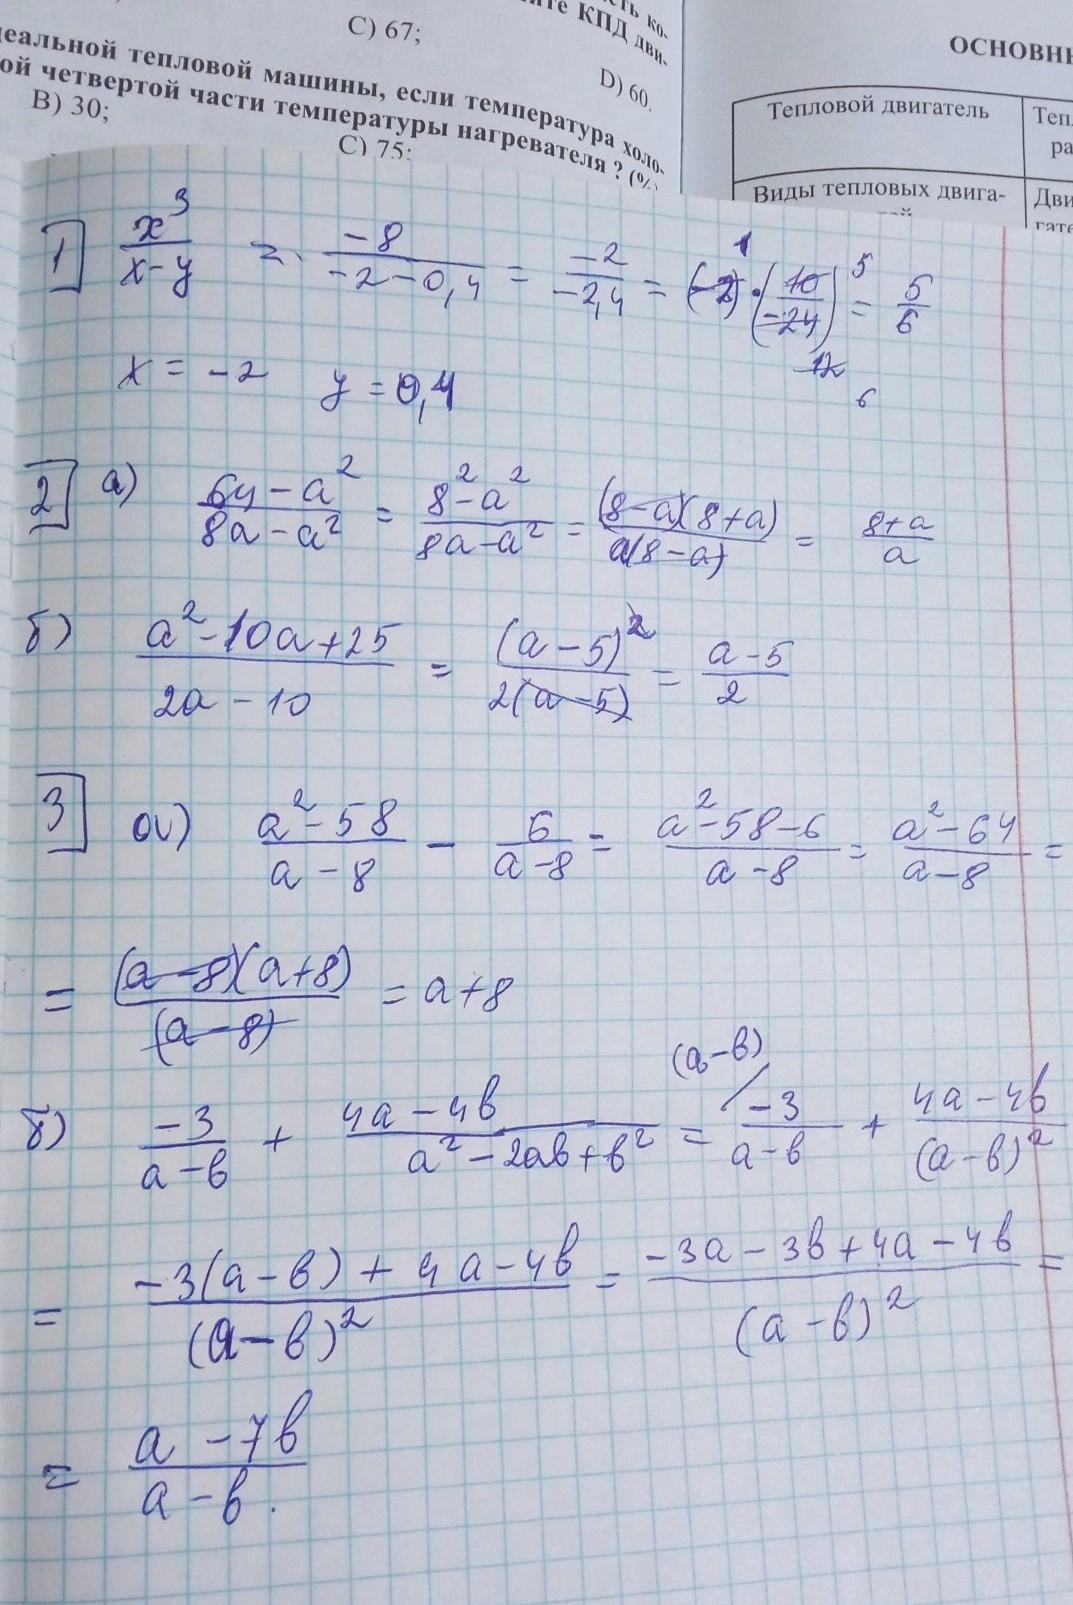 С) 67;
ите КПД дви-
D) 60.
еальной тепловой машины, если температура холо-
ой четвертой части температуры нагревателя ? (%)
В) 30;
С) 75;
ОСНОВНЫ
Тепловой двигатель
Виды тепловых двига-
1] x³/(x-y) = -8/(-2-0,4) = -2/(-2,4) = (-2)·(10/-24) = 5/6
1 5 12 6
x = -2 y = 0,4
2] а) (64-a²)/(8a-a²) = (8²-a²)/(8a-a²) = (8-a)(8+a)/a(8-a) = (8+a)/a
б) (a²-10a+25)/(2a-10) = (a-5)²/2(a-5) = (a-5)/2
3] а) (a²-58)/(a-8) - 6/(a-8) = (a²-58-6)/(a-8) = (a²-64)/(a-8) =
= (a-8)(a+8)/(a-8) = a+8
(a-в)
б) -3/(a-в) + (4a-4в)/(a²-2aв+в²) = -3/(a-в) + (4a-4в)/(a-в)²
= (-3(a-в)+4a-4в)/(a-в)² = (-3a-3в+4a-4в)/(a-в)² =
= (a-7в)/(a-в).